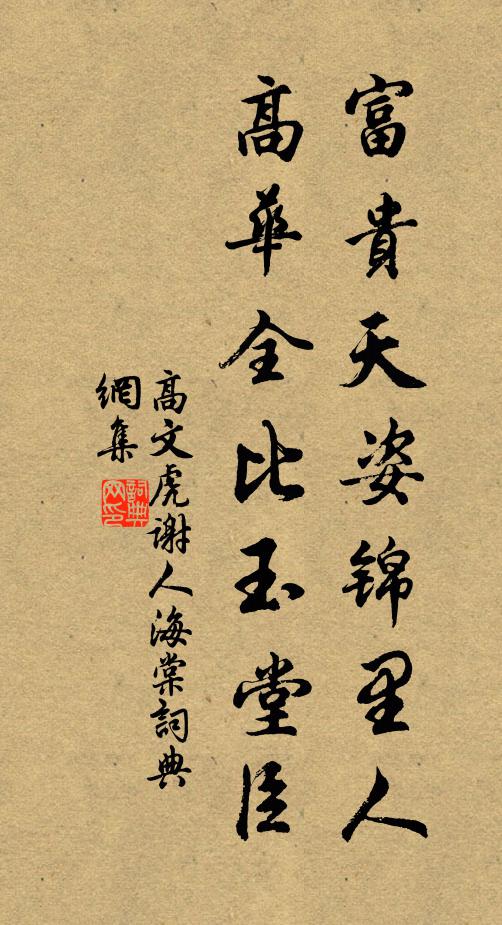 富貴天姿錦里人
高華全比玉堂臣
高文虎謝人海棠詞典
網集
詞典網印